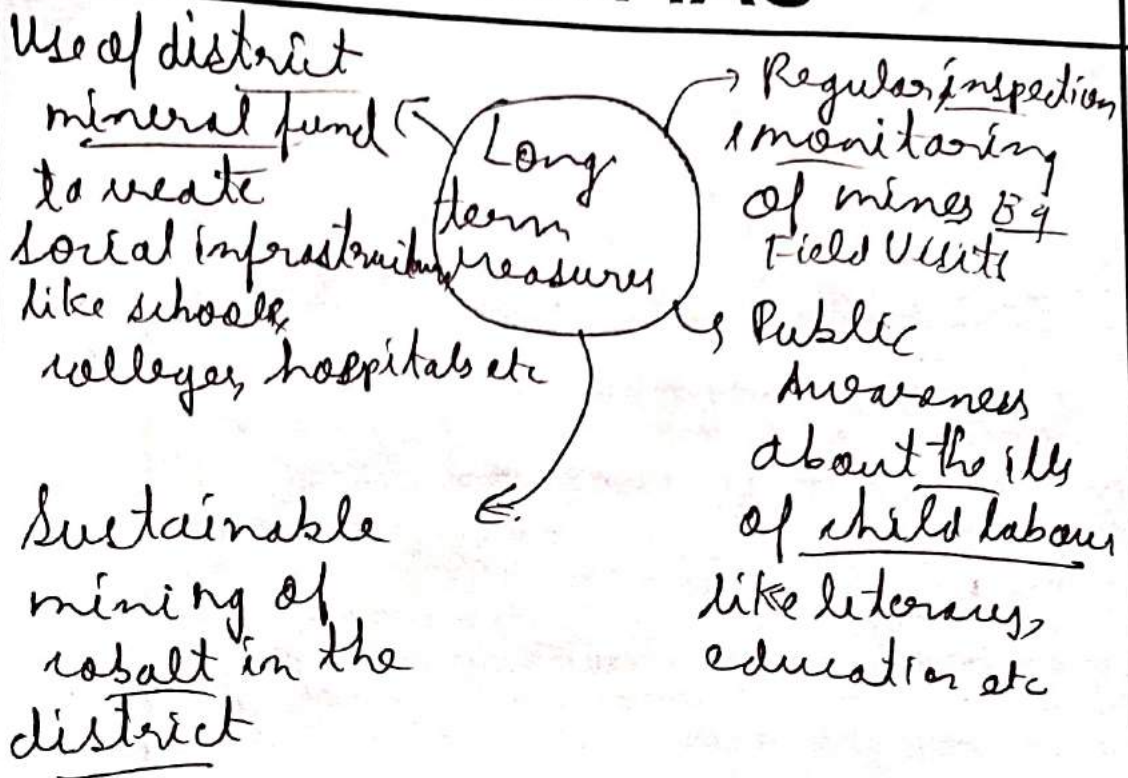 Use of district
mineral fund
to create
social infrastructure
like schools,
colleges, hospitals etc
Long
term
measures
Regular inspection
& monitoring
of mines Eg
Field Visits
Public
Awareness
about the ills
of child labour
like literacy,
education etc
Sustainable
mining of
cobalt in the
district